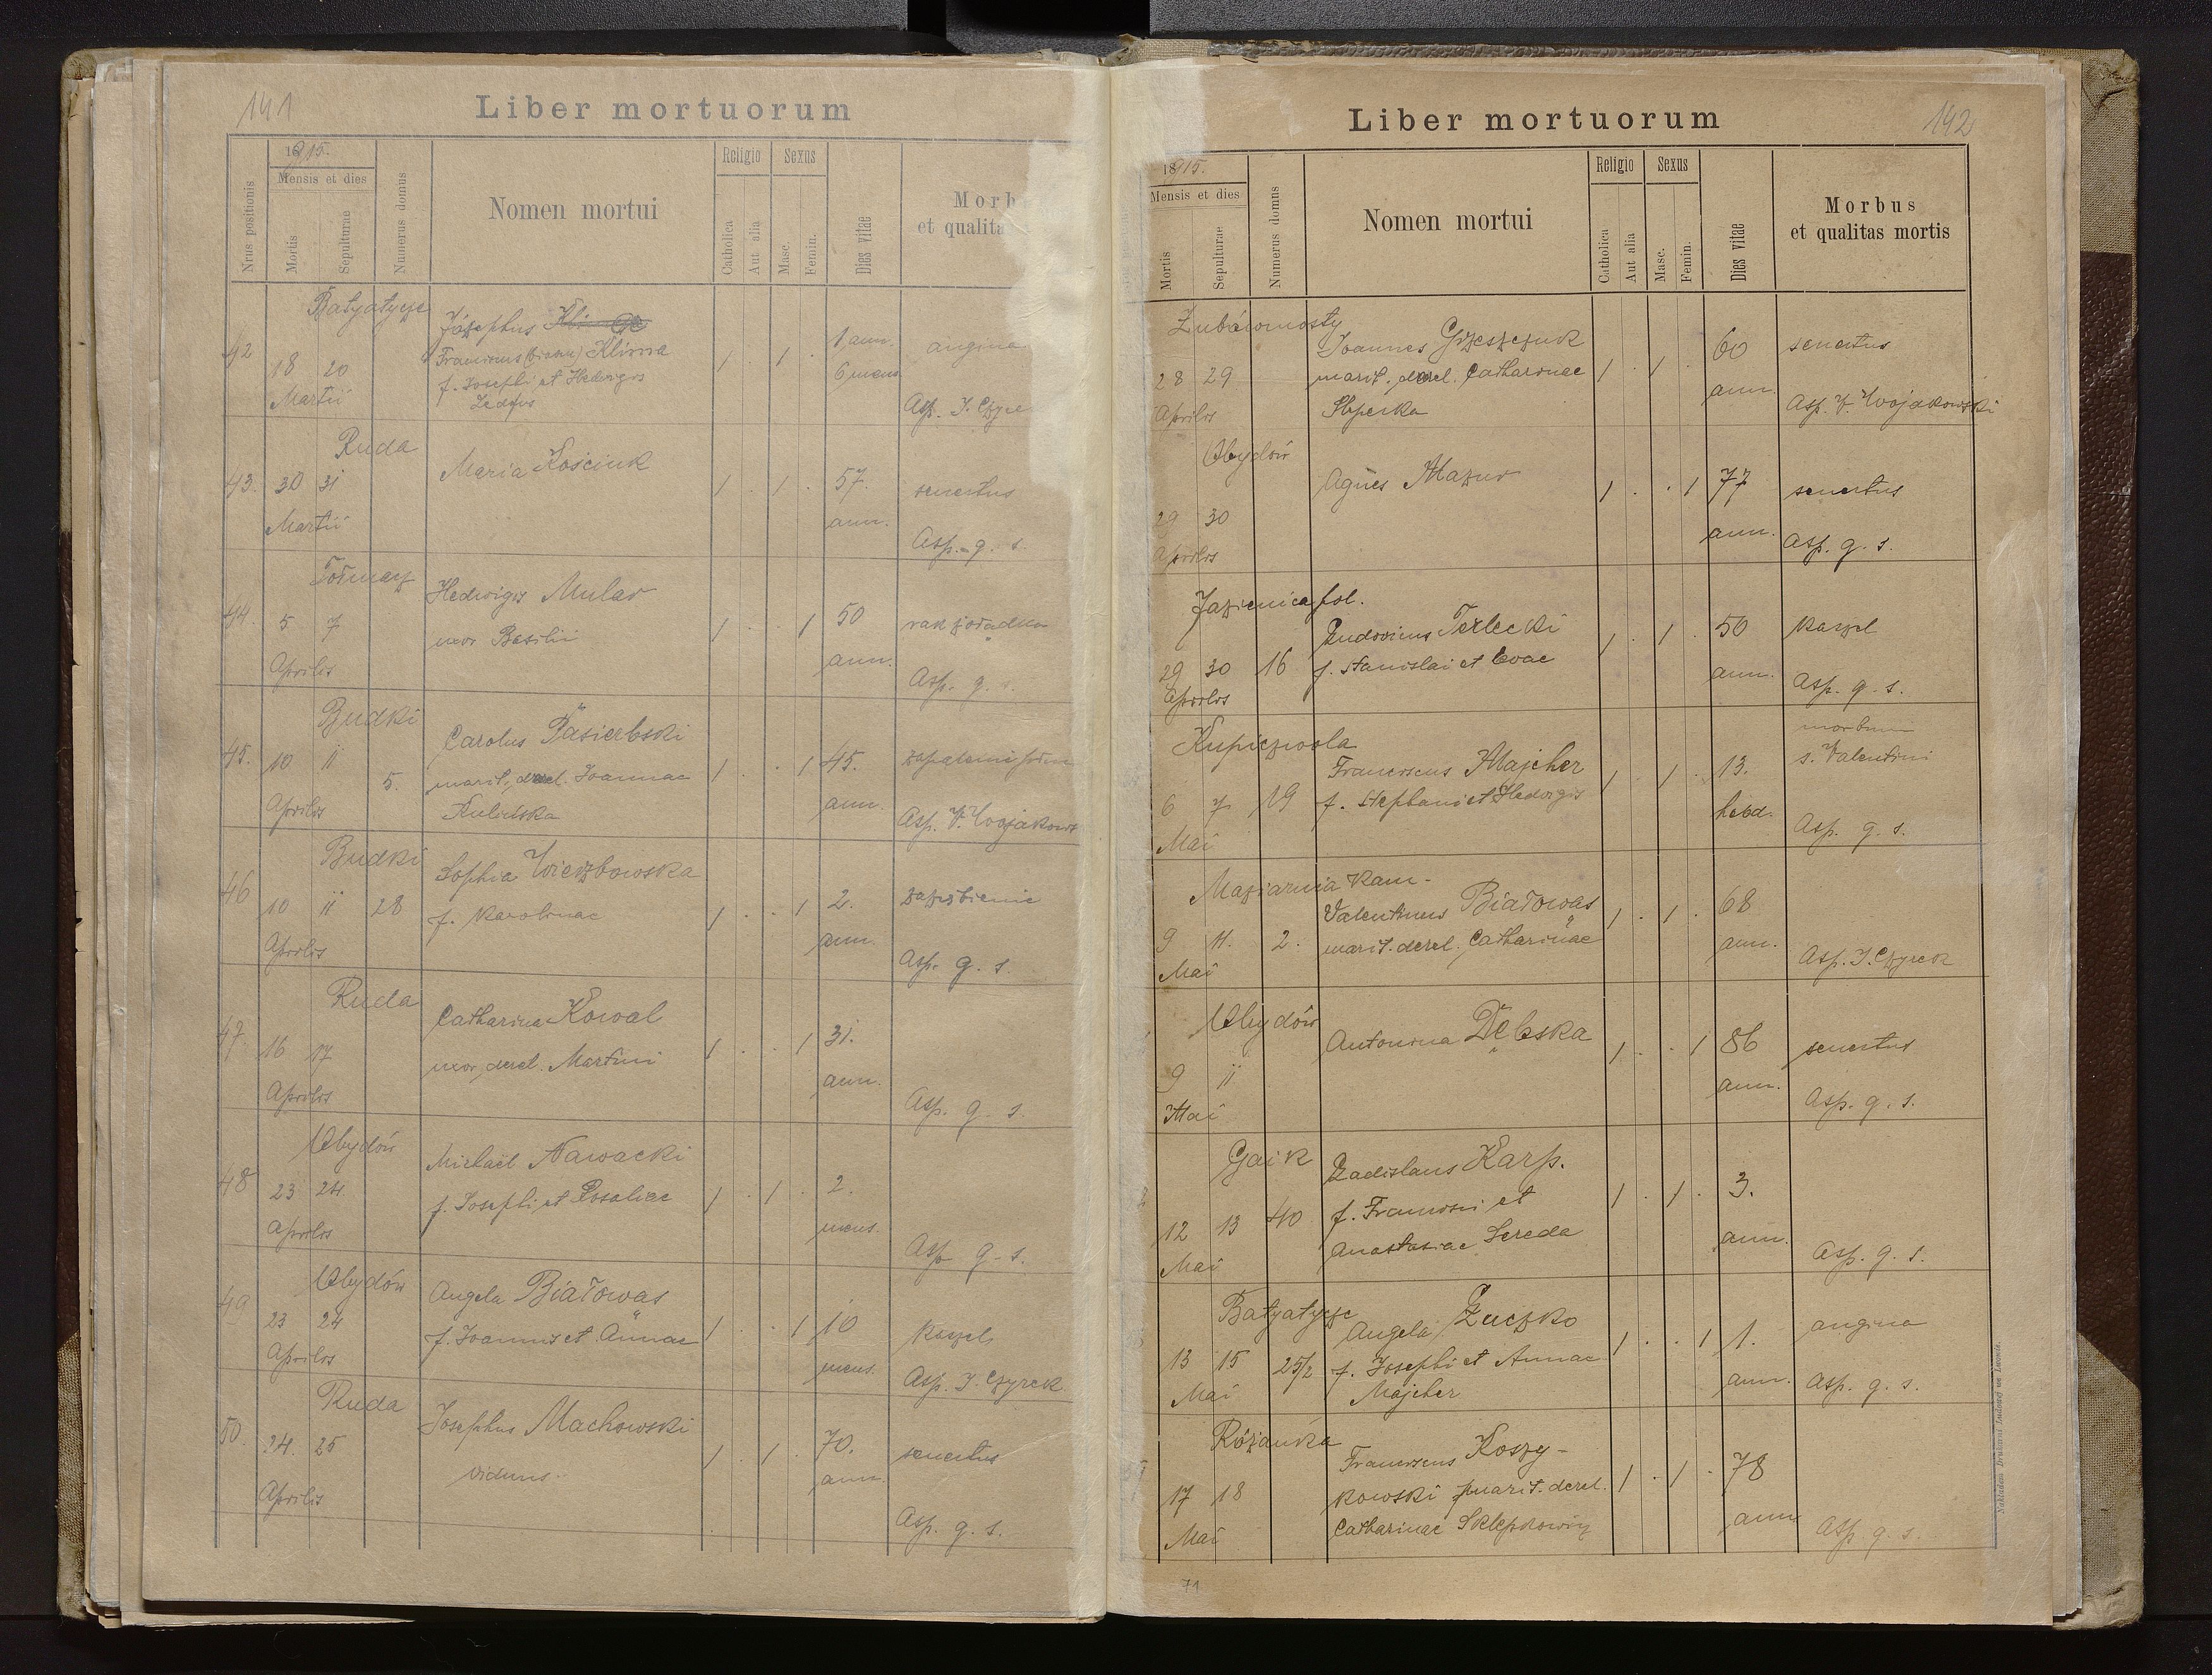 141
Liber mortuorum
1915.
Mensis et dies
Nrus positionis
Mortis
Sepulturae
Numerus domus
Nomen mortui
Religio
Catholica
Aut alia
Sexus
Masc.
Femin.
Dies vitae
Morb
et qualita
Batyatycze
42
18 20
Martii
Józephus
Klima
f. Josephi et Hedvigis
1 . 1 .
1 ann.
6 mens
angina
Asp. J. Czyre
Ruda
43. 30 31
Martii
Maria Kościuk
1 . 1 .
57.
ann.
senectus
Asp. q. s.
44. 5 7
Aprilis
Hedvigis Mular
uxor Basilii
1 . . 1
50
ann.
rak żołądka
Asp. q. s.
Budki
45. 10 11 5.
Aprilis
Carolus Pasierbski
marit. derel. Joannae
1 . . 1
45.
ann.
Asp. V. Wojakows
Budki
46 10 11 28
Aprilis
Sophia Wierzbowska
f. Karolinae
1 . . 1
2.
ann.
Asp. q. s.
Ruda
47. 16 17
Aprilis
Catharina Kowal
uxor, derel. Martini
1 . . 1
31.
ann.
Asp. q. s.
Obydów
48 23 24
Aprilis
Michael Nawacki
f. Josephi et Rosaliae
1 . 1 .
2.
mens.
Asp q. s.
Obydów
49 23 24
Aprilis
Angela Białowąs
f. Joannis et Annae
1 . . 1
10
mens.
koszel
Asp. J. Czyrek
Ruda
50. 24. 25
Aprilis
Josephus Machowski
viduus.
1 . 1 .
70.
ann.
senectus
Asp. q. s.
142
Liber mortuorum
1915.
Mensis et dies
Mortis
Sepulturae
Numerus domus
Nomen mortui
Religio
Catholica
Aut alia
Sexus
Masc.
Femin.
Dies vitae
Morbus
et qualitas mortis
28 29
Aprilis
Joannes Grzeszczuk
marit. derel. Catharinae
1 . 1 .
60
ann.
senectus
Asp. V. Wojakowski
Obydów
29 30
Aprilis
Agnes Mazur
1 . . 1
77
ann.
senectus
Asp. q. s.
Jazienica pol.
29 30 16
Aprilis
Ludovicus Terlecki
f. Stanislai et Evae
1 . 1 .
50
ann.
kaszel
Asp. q. s.
Kupiczwola
6 7 19
Mai
Franciscus Majcher
f. Stephani et Hedvigis
1 . 1 .
13.
hebd.
morbum
s. Valentini
Asp. q. s.
Maziarnia Kam-
9 11. 2.
Mai
Valentinus Białowąs
marit. derel. Catharinae
1 . 1 .
68
ann.
Asp. J. Czyrek
Obydów
9 11
Mai
Antonina Dębska
1 . . 1
86
ann.
senectus
Asp. q. s.
Gaik
12 13 40
Mai
Ladislaus Karp.
f. Francisci et
Anastasiae Sereda
1 . 1 .
3.
ann.
Asp. q. s.
Batyatycze
13 15 25/2
Mai
Angela Łuczko
f. Josephi et Annae
Majcher
1 . . 1
1.
ann.
angina
Asp. q. s.
Różanka
17 18
Mai
Franciscus Koszy-
kowski marit. derel.
Catharinae
1 . 1 .
78
ann
Asp. q. s.
71